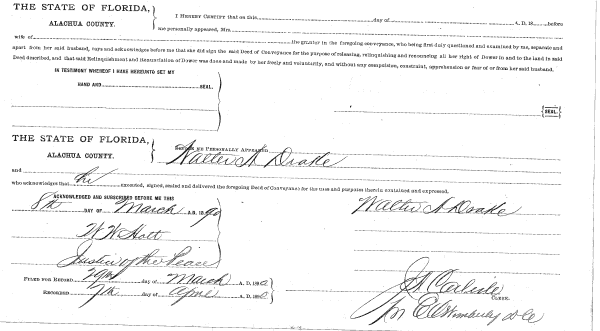 THE STATE OF FLORIDA,
ALACHUA COUNTY.
I HEREBY CERTIFY that on this day of A. D. 18 before
me personally appeared, Mrs.
wife of the grantor in the foregoing conveyance, who being first duly questioned and examined by me, separate and
apart from her said husband, says and acknowledges before me that she did sign the said Deed of Conveyance for the purpose of releasing, relinquishing and renouncing all her right of Dower in and to the land in said
Deed described, and that said Relinquishment and Renunciation of Dower was done and made by her freely and voluntarily, and without any compulsion, constraint, apprehension or fear of or from her said husband.
IN TESTIMONY WHEREOF I MAKE HEREUNTO SET MY
HAND AND SEAL.
SEAL.
THE STATE OF FLORIDA,
ALACHUA COUNTY.
BEFORE ME PERSONALLY APPEARED
Walter N Drake
and he
who acknowledges that executed, signed, sealed and delivered the foregoing Deed of Conveyance for the uses and purposes therein contained and expressed.
ACKNOWLEDGED AND SUBSCRIBED BEFORE ME THIS
8th DAY OF March A.D. 1890
Walter N Drake
W W
Justice of the Peace
FILED FOR RECORD 29th day of March A. D. 189
RECORDED 7th day of April A. D. 189
J A Carlisle
CLERK.
E C Wimberly D C